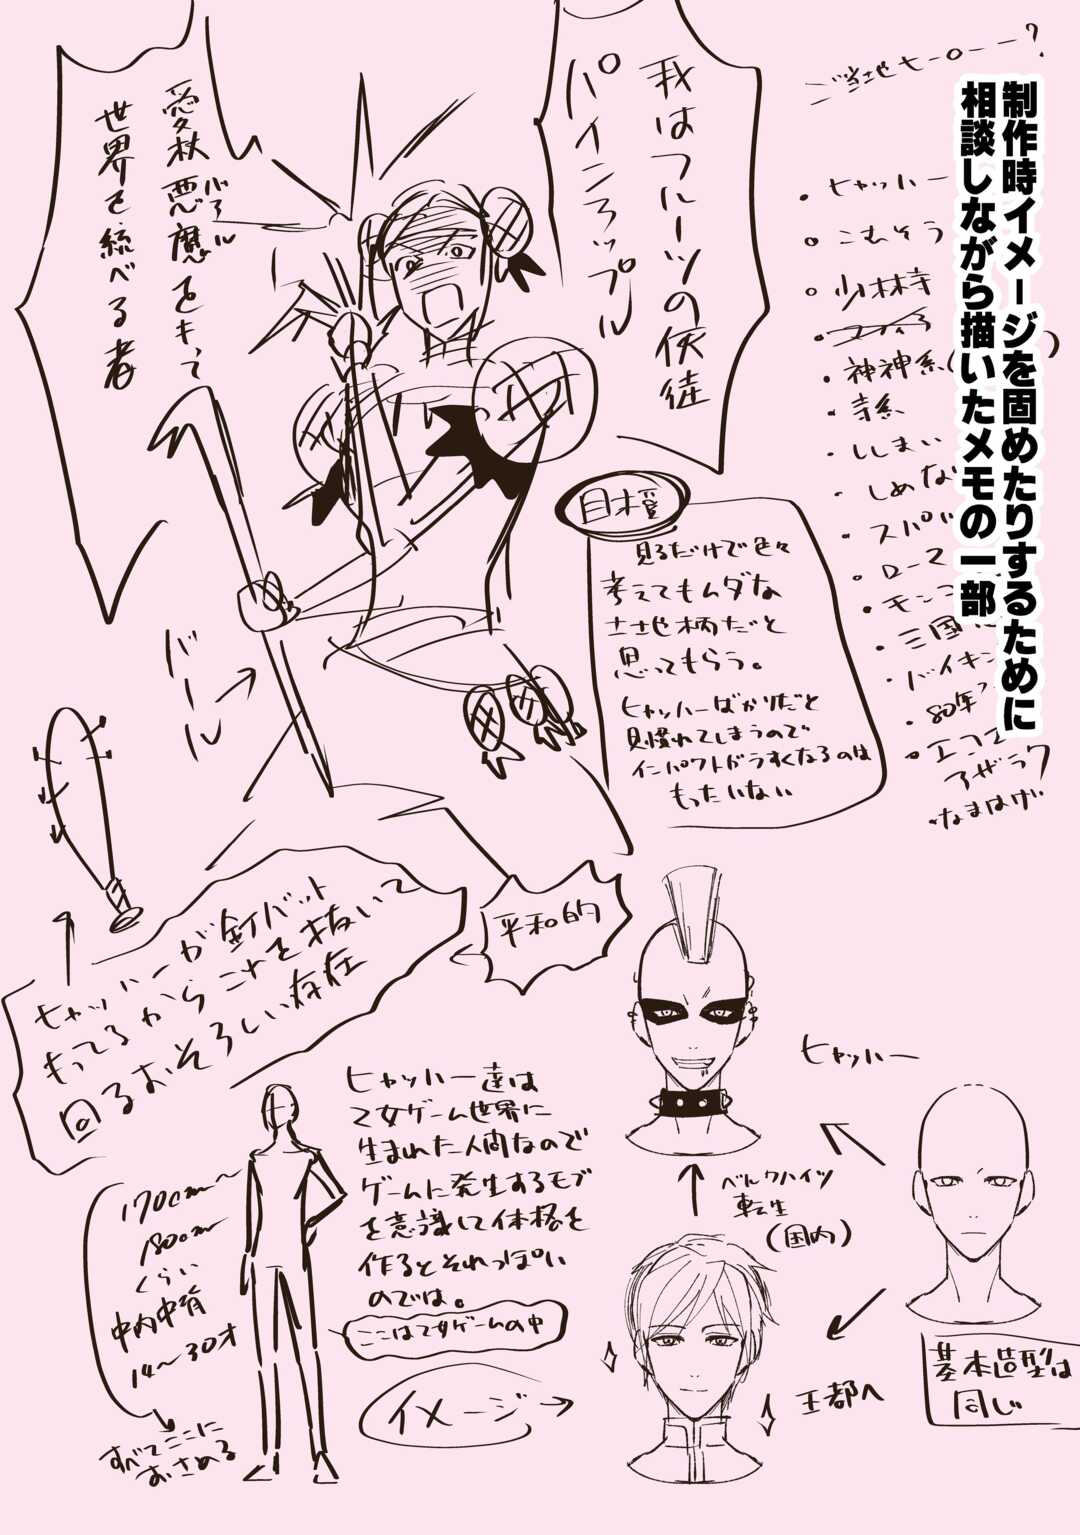 制作時イメージを固めたりするために
相談しながら描いたメモの一部
ご当地ヒーロー？
・ヒャッハー
・こむそう
・少林寺
・神神系
・寺系
・ししまい
・しめな
・スパル
・ローマ
・モンゴ
・三国
・バイキン
・80年
アザラク
・なまはげ
我はフルーツの使徒
パインアップル
愛杖悪魔をキって
バアル
世界を統べる者
バール
目標
見るだけで色々
考えてもムダな
土地柄だと
思ってもらう。
ヒャッハーばかりだと
見慣れてしまうので
インパクトがうすくなるのは
もったいない
平和的
ヒャッハーが釘バット
もってるから コレを抜いて
回るおそろしい存在
ヒャッハー達は
乙女ゲーム世界に
生まれた人間なので
ゲームに発生するモブ
を意識して体格を
作るとそれっぽい
のでは。
ここは乙女ゲームの中
イメージ
170cm〜
180cm
くらい
中肉中背
14〜30才
すべてここに
おさめる
ヒャッハー
ベルクハイツ
転生
(国内)
王都へ
基本造型は
同じ